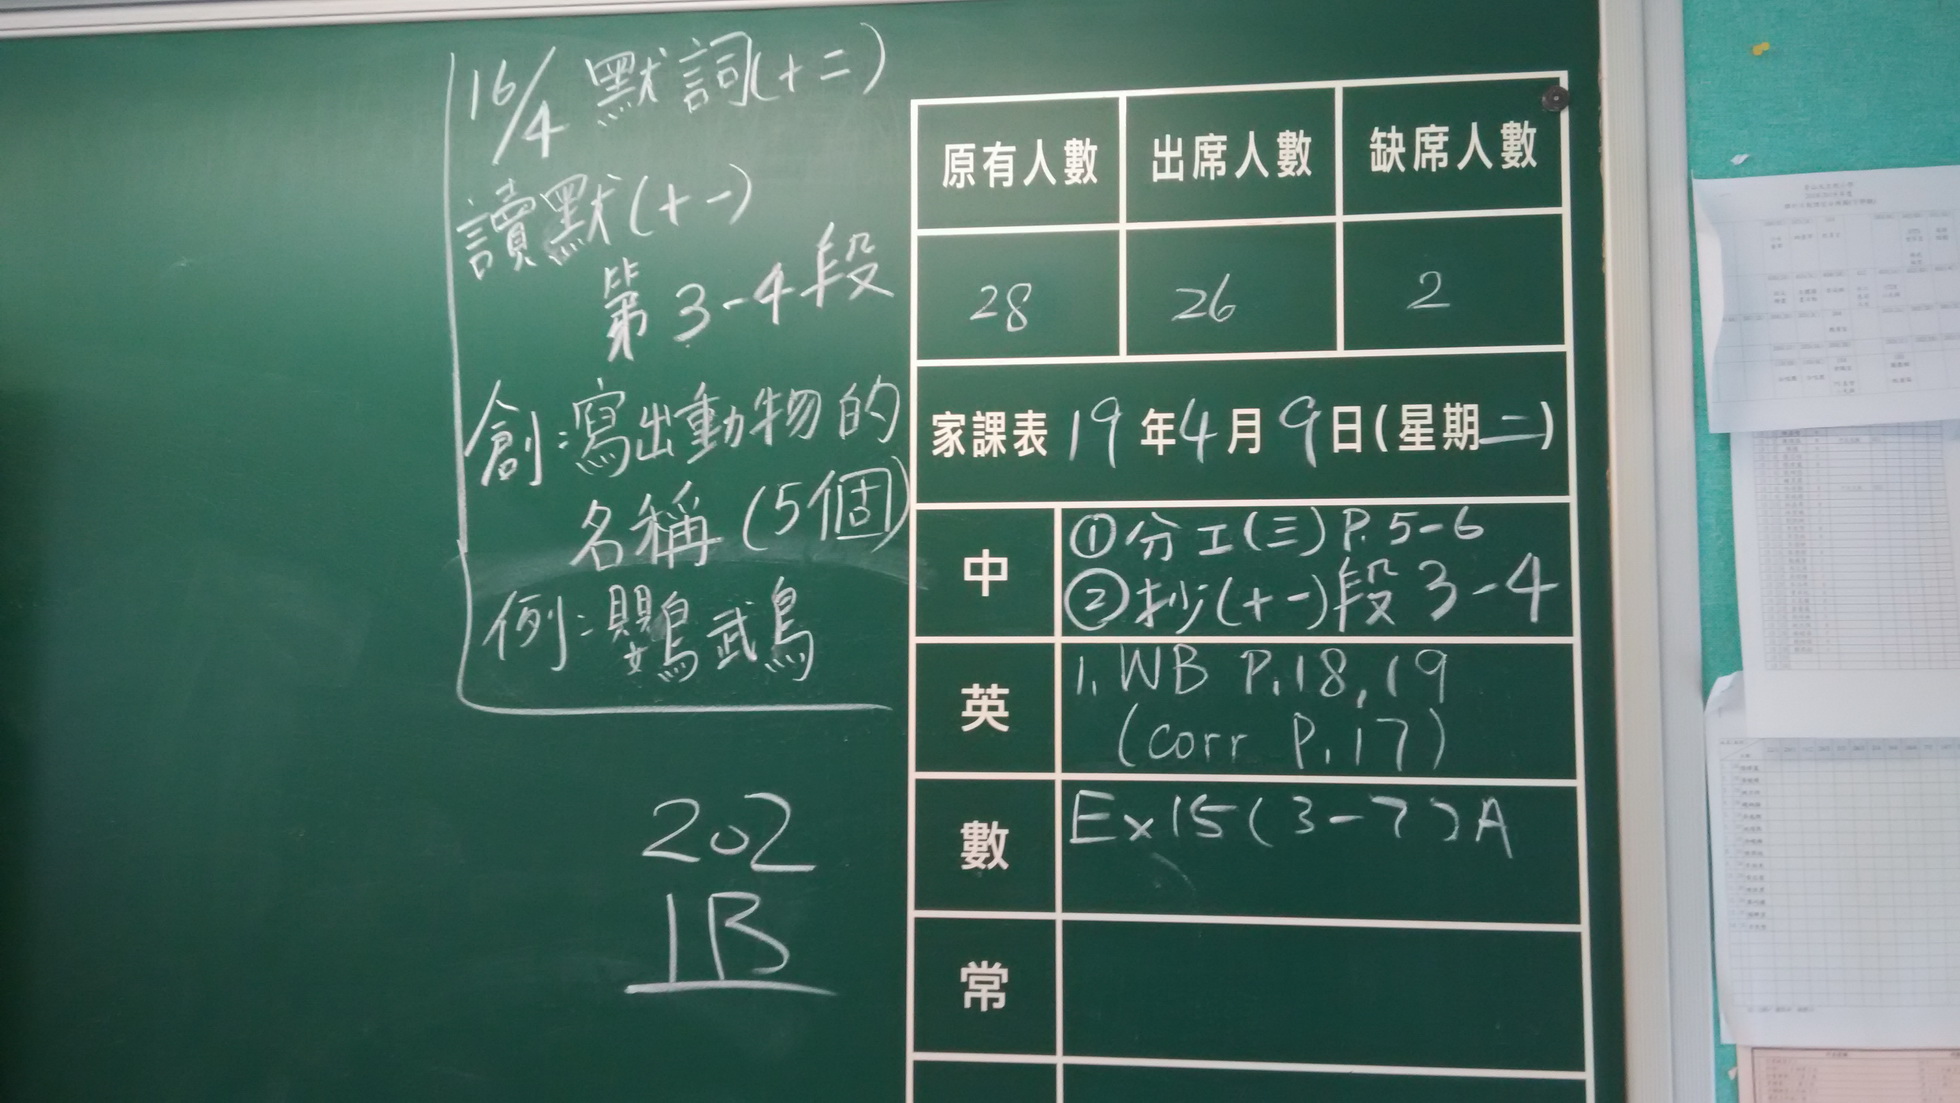 16/4 默詞(十二)
讀默(十一)
第3-4段
創:寫出動物的
名稱(5個)
例:鸚鵡鳥
202
1B
原有人數 出席人數 缺席人數
28 26 2
家課表 19年4月9日(星期二)
中 ①分工(三)P.5-6
②抄(十一)段3-4
英 1. WB P.18,19
(corr P.17)
數 Ex15(3-7)A
常